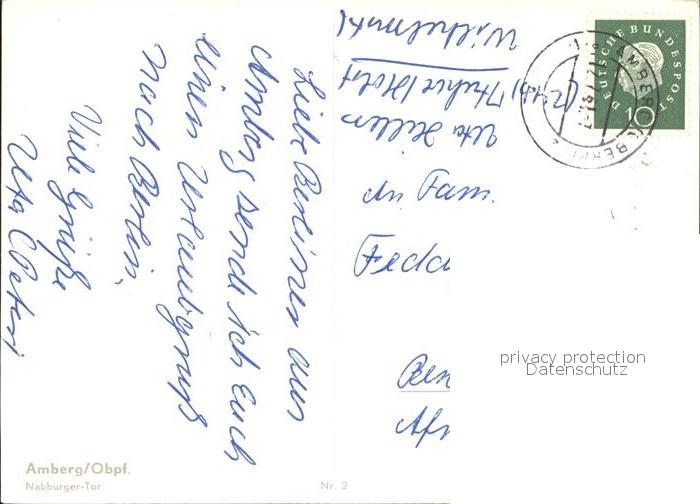 Liebe Berliner aus
Amberg sende ich Euch
einen Urlaubsgruß
nach Berlin.
Viele Grüße
Uta
Uta
(24b)
Wilhelmstr.
An Fam.
Feda
Ber
Afr
DEUTSCHE BUNDESPOST
10
AMBERG
privacy protection
Datenschutz
Amberg/Obpf.
Nabburger-Tor
Nr. 2